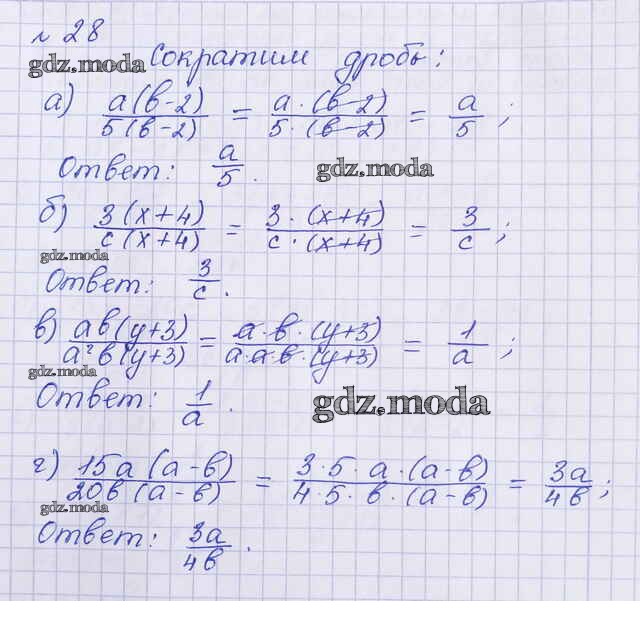 № 28
gdz.moda
Сократим дробь:
а) a(b-2)/5(b-2) = a·(b-2)/5·(b-2) = a/5 ;
Ответ: a/5 .
gdz.moda
б) 3(x+4)/c(x+4) = 3·(x+4)/c·(x+4) = 3/c ;
gdz.moda
Ответ: 3/c .
в) ab(y+3)/a²b(y+3) = a·b·(y+3)/a·a·b·(y+3) = 1/a ;
gdz.moda
Ответ: 1/a .
gdz.moda
г) 15a(a-b)/20b(a-b) = 3·5·a·(a-b)/4·5·b·(a-b) = 3a/4b ;
gdz.moda
Ответ: 3a/4b .